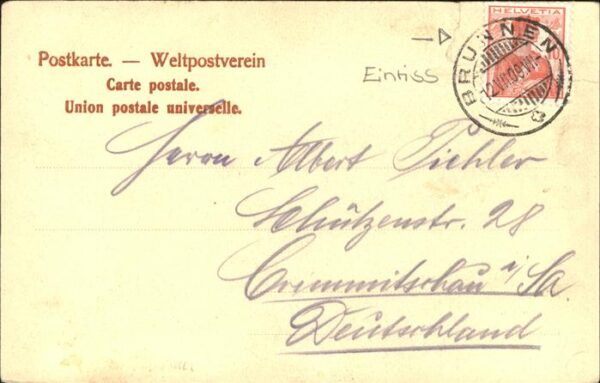 HELVETIA
BRUNNEN
12.VII.09.VII-
Postkarte. — Weltpostverein
Carte postale.
Union postale universelle.
Einriss
Herrn Albert Pichler
Schützenstr. 28
Crimmitschau i/Sa.
Deutschland